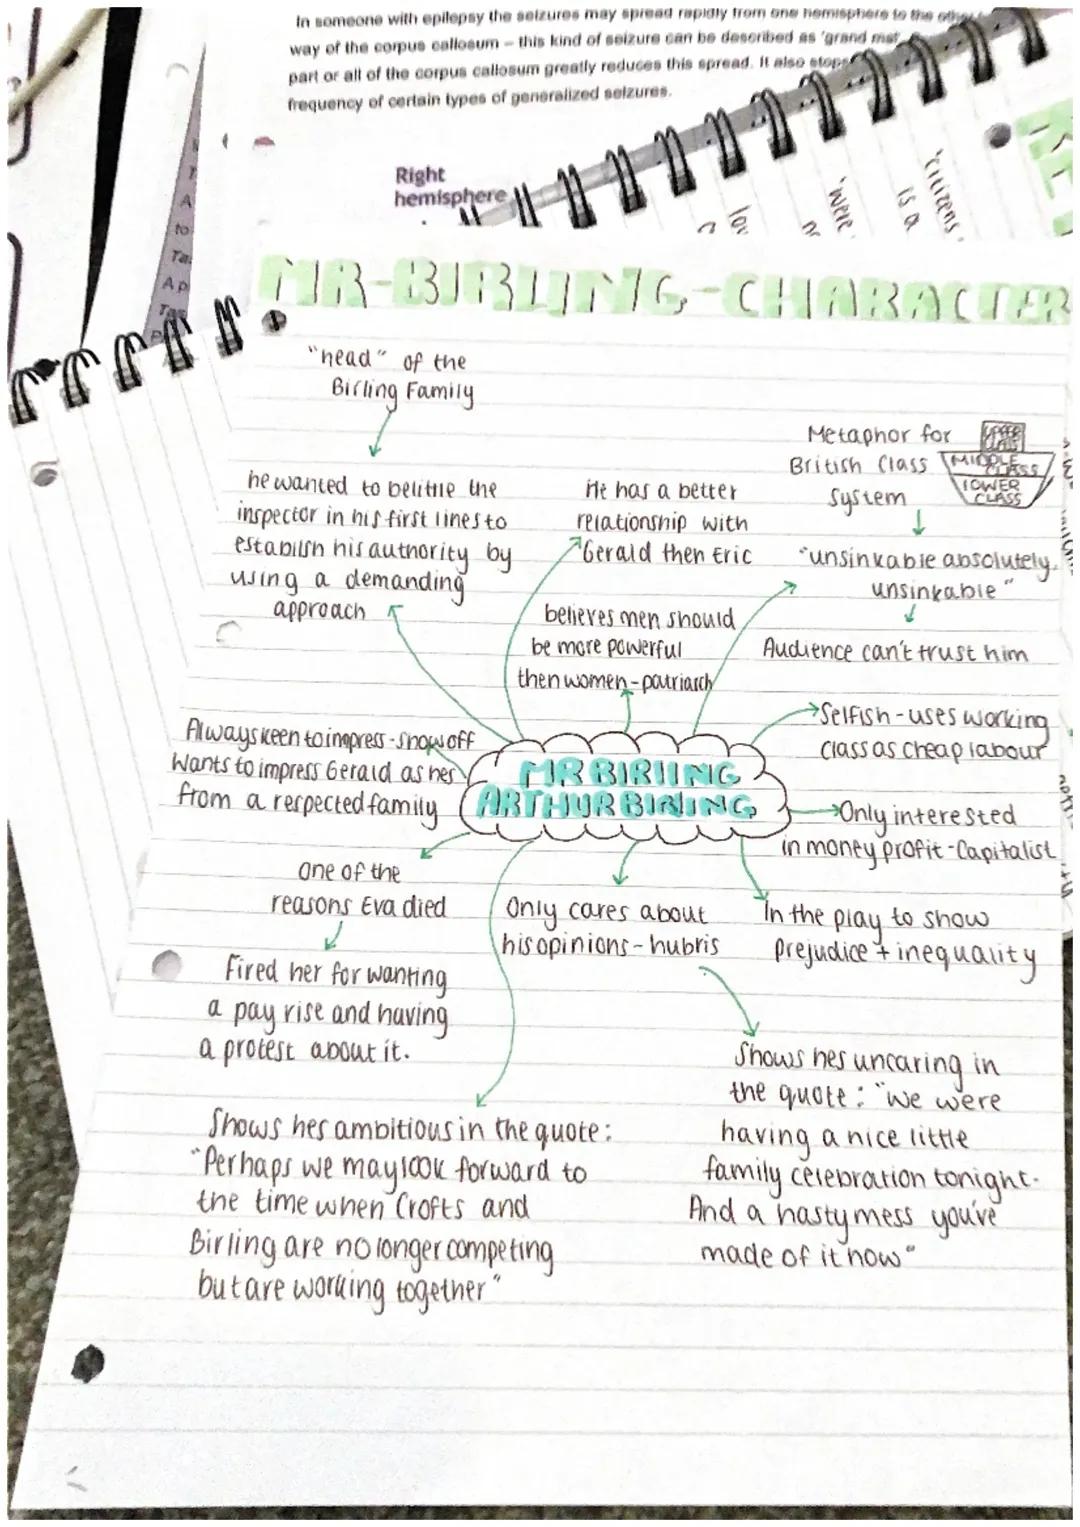 In someone with epilepsy the seizures may spread rapidly from one hemisphere to the other
way of the corpus callosum – this kind of seizure can be described as 'grand mal'
part or all of the corpus callosum greatly reduces this spread. It also stops
frequency of certain types of generalized seizures.
Right
hemisphere
'citizens.
is a
'were
MR-BIRLING-CHARACTER
"head" of the
Birling Family
he wanted to belittle the
inspector in his first lines to
establish his authority by
using a demanding
approach
He has a better
relationship with
Gerald then Eric
Metaphor for
British Class
System
UPPER
CLASS
MIDDLE
CLASS
LOWER
CLASS
"unsinkable absolutely
unsinkable"
Audience can't trust him
believes men should
be more powerful
then women - patriarch
Always keen to impress - show off
Wants to impress Gerald as hes
from a respected family
MR BIRLING
ARTHUR BIRLING
Selfish - uses working
class as cheap labour
Only interested
in money profit - Capitalist
one of the
reasons Eva died
Fired her for wanting
a pay rise and having
a protest about it.
Only cares about
his opinions - hubris
In the play to show
prejudice + inequality
Shows hes uncaring in
the quote: "we were
having a nice little
family celebration tonight.
And a nasty mess you've
made of it now"
Shows hes ambitious in the quote:
"Perhaps we may look forward to
the time when Crofts and
Birling are no longer competing
but are working together"